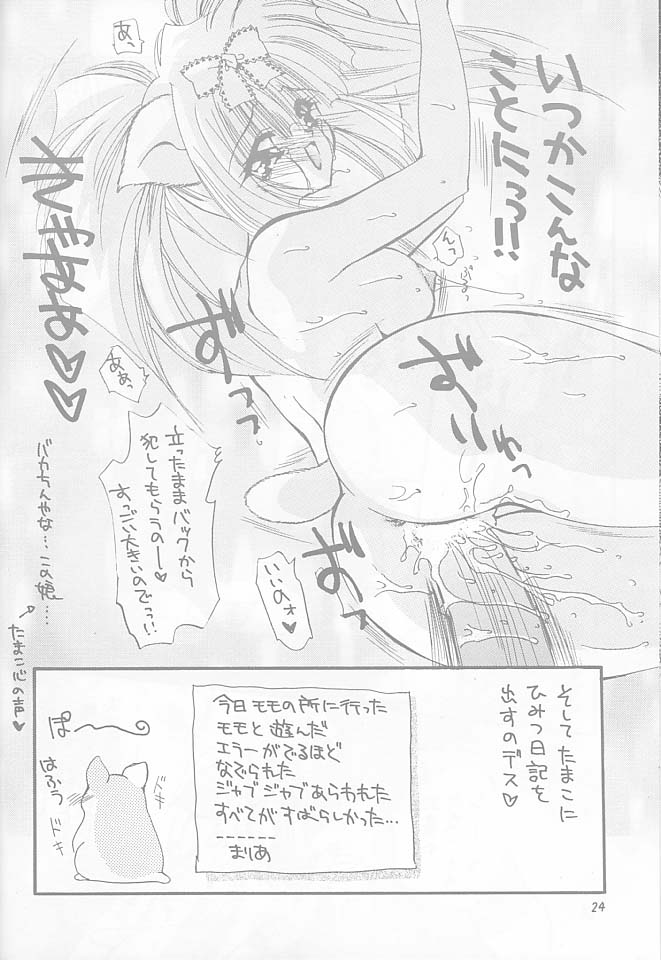 いつかこんな
ことにっ!!
あ、
んっ
ぷるっ
れしまねぇ♡♡
ああっ
立ったままバックから
犯してもらうのー♡
すっごい大きいのでっ!!
いいのォ♡
バカちんやな…この娘…
たまこ心の声♡
そしてたまこに
ひみつ日記を
出すのデス♡
今日モモの所に行った
モモと遊んだ
エラーがでるほど
なでられた
ジャブジャブあらわれた
すべてがすばらしかった…
------
まりあ
ぽ〜
はふぅ
ドキ
ドキ
24